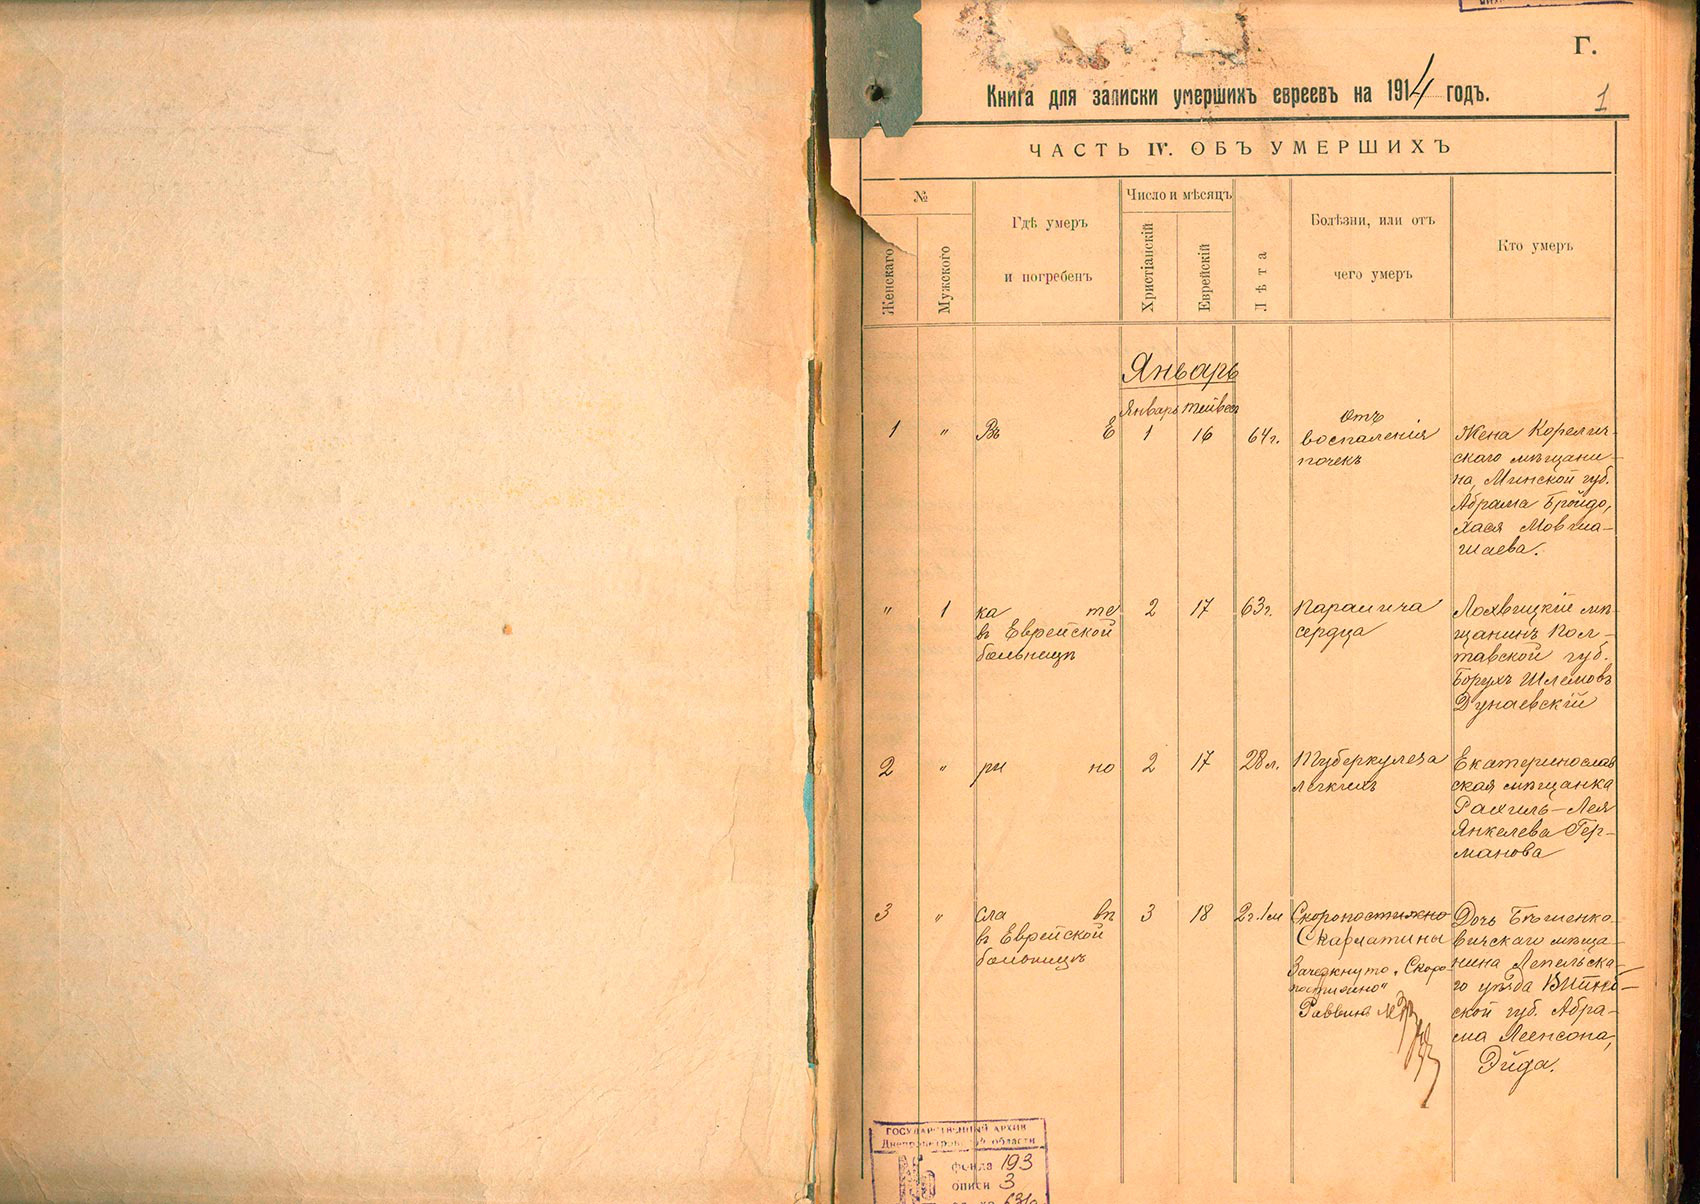 Г.
Книга для записки умершихъ евреевъ на 1914 годъ.
1
ЧАСТЬ IV. ОБЪ УМЕРШИХЪ
№
Женскаго
Мужского
Гдѣ умеръ
и погребенъ
Число и мѣсяцъ
Христіанскій
Еврейскій
Лѣта
Болѣзни, или отъ
чего умеръ
Кто умеръ
Январь
Январь Тейвесъ
1 " Въ Е 1 16 64 г.
Отъ
воспаленія
почекъ
Жена Корелич-
скаго мѣщани-
на, Минской губ.
Абрама Бройдо,
Хася Мовша-
шаева.
" 1 ка те 2 17 63 г.
въ Еврейской
больницѣ
Паралича
сердца
Лохвицкій мѣ-
щанинъ Пол-
тавской губ.
Борухъ Шлемовъ
Дунаевскій
2 " ри но 2 17 28 л.
Туберкулеза
легкихъ
Екатеринослав
ская мѣщанка
Рахиль-Лея
Янкелева Гер-
манова
3 " сла вѣ 3 18 2 г. 1 м
въ Еврейской
больницѣ
Скоропостижно
Скарлатины
Зачеркнуто "Скоро-
постижно"
Раввинъ
Дочь Бѣшенко-
вичскаго мѣща-
нина Лепельска-
го уѣзда Витеб-
ской губ. Абра-
ма Леенсона,
Эйда.
ГОСУДАРСТВЕННЫЙ АРХИВ
Днепропетровской области
фонда 193
описи 3